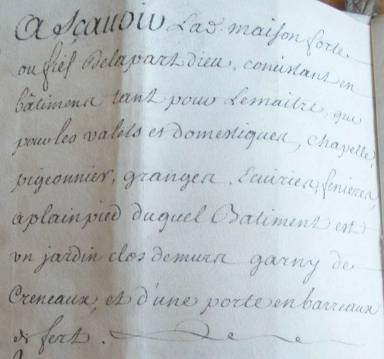 A Scauoir Lad. maison forte
ou fief Delapart dieu, consistant en
bâtimens tant pour Lemaitre, que
pour les valets et domestiques, chapelle,
pigeonnier, granges, Ecuiries, fenieres,
aplainpied duquel Batiment est
un jardin clos demurs garny de
Creneaux, et d'une porte en barreaux
de fert.